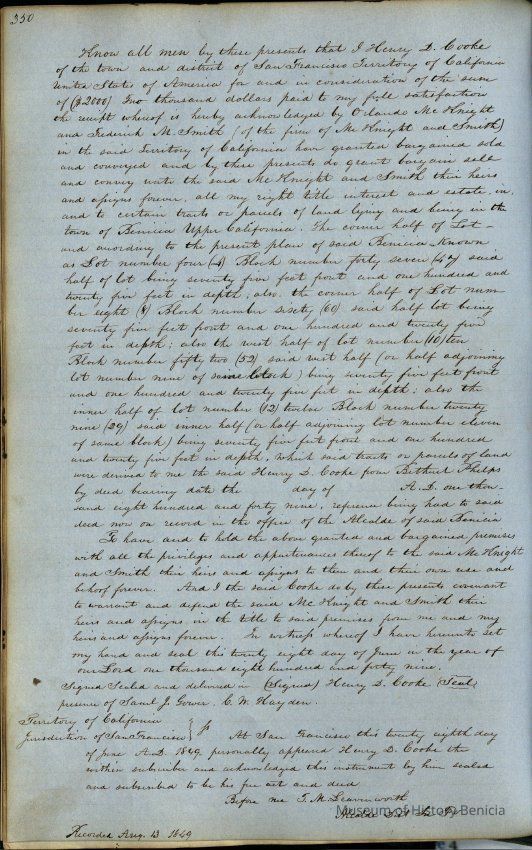 350
Know all men by these presents that I Henry D. Cooke
of the town and district of San Francisco Territory of California
United States of America for and in consideration of the sum
of ($2000) Two thousand dollars paid to my full satisfaction
the receipt whereof is hereby acknowledged by Orlando McKnight
and Frederick M. Smith (of the firm of McKnight and Smith)
in the said Territory of California have granted bargained sold
and conveyed and by these presents do grant bargain sell
and convey unto the said McKnight and Smith their heirs
and assigns forever, all my right title interest and estate in
and to certain tracts or parcels of land lying and being in the
town of Benicia Upper California. The corner half of Lot
and according to the present plan of said Benicia known
as Lot number four (4) Block number forty seven (47) said
half of lot being seventy five feet front and one hundred and
twenty five feet in depth; also the corner half of Lot num
ber eight (8) Block number sixty (60) said half lot being
seventy five feet front and one hundred and twenty five
feet in depth; also the west half of lot number (10) ten
Block number fifty two (52) said west half (or half adjoining
lot number nine of same block) being seventy five feet front
and one hundred and twenty five feet in depth; also the
inner half of lot number (12) twelve Block number twenty
nine (29) said inner half (or half adjoining lot number eleven
of same block) being seventy five feet front and one hundred
and twenty five feet in depth, which said tracts or parcels of land
were derived to me the said Henry D. Cooke from Bethuel Phelps
by deed bearing date the day of A.D. one thou-
sand eight hundred and forty nine, reference being had to said
deed now on record in the office of the Alcalde of said Benicia
To have and to hold the above granted and bargained premises
with all the privileges and appurtenances thereof to the said McKnight
and Smith their heirs and assigns to them and their own use and
behoof forever. And I the said Cooke do by these presents covenant
to warrant and defend the said McKnight and Smith their
heirs and assigns, in the title to said premises from me and my
heirs and assigns forever. In witness whereof I have hereunto set
my hand and seal this twenty eight day of June in the year of
our Lord one thousand eight hundred and forty nine.
Signed Sealed and delivered in (Signed) Henry D. Cooke (Seal)
presence of Saml J. Gower, C. W. Hayden.
Territory of California
Jurisdiction of San Francisco } ss At San Francisco this twenty eighth day
of June A.D. 1849, personally appeared Henry D. Cooke the
within subscriber and acknowledged this instrument by him sealed
and subscribed to be his free act and deed
Before me T. M. Leavenworth
Alcalde
Recorded Aug. 13 1849
Museum of History Benicia